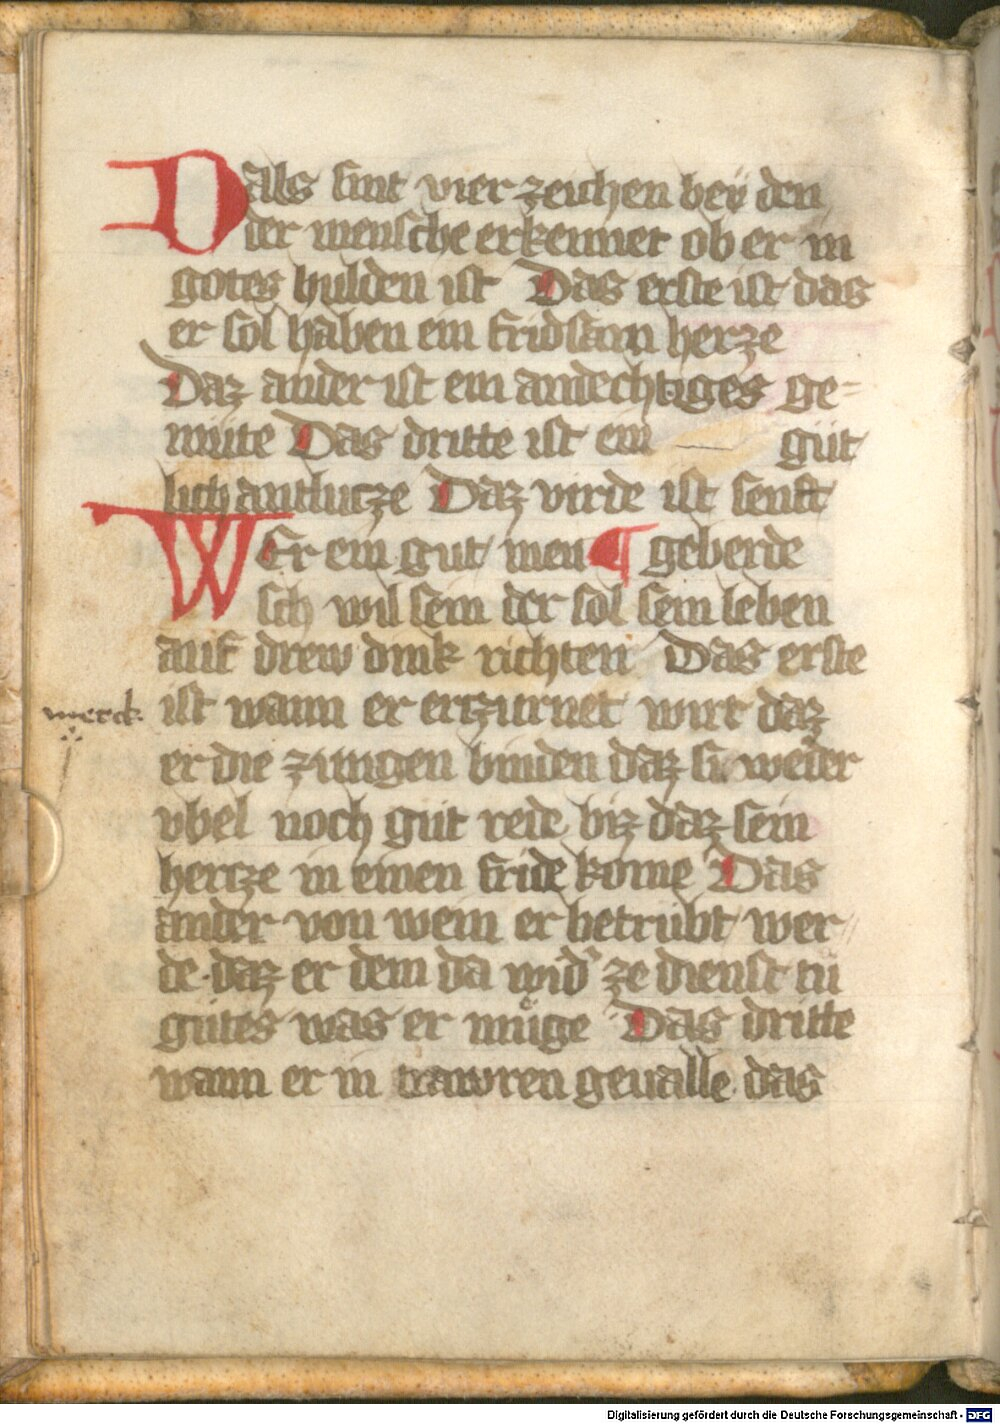 Dalls sint vier zeichen beÿ den
der mensche erkennet ob er in
gotes hulden ist Das erste ist das
er sol haben ein fridsam herze
Daz ander ist ein andechtiges ge-
mute Das dritte ist ein gut
lich antlutze Daz virde ist senft
WEr ein gut men ¶ geberde
sch wil sein der sol sein leben
auf drew dink richten Das erste
merck ist wann er erzurnet wirt daz
er die zungen binden daz si weder
vbel noch gut rede biz daz sein
hertze in einen fride kome Das
ander von wem er betrubt wer
de daz er dem da wid' ze dienst tu
gutes was er muͤge Das dritte
wann er in trawren geualle das
Digitalisierung gefördert durch die Deutsche Forschungsgemeinschaft - DFG